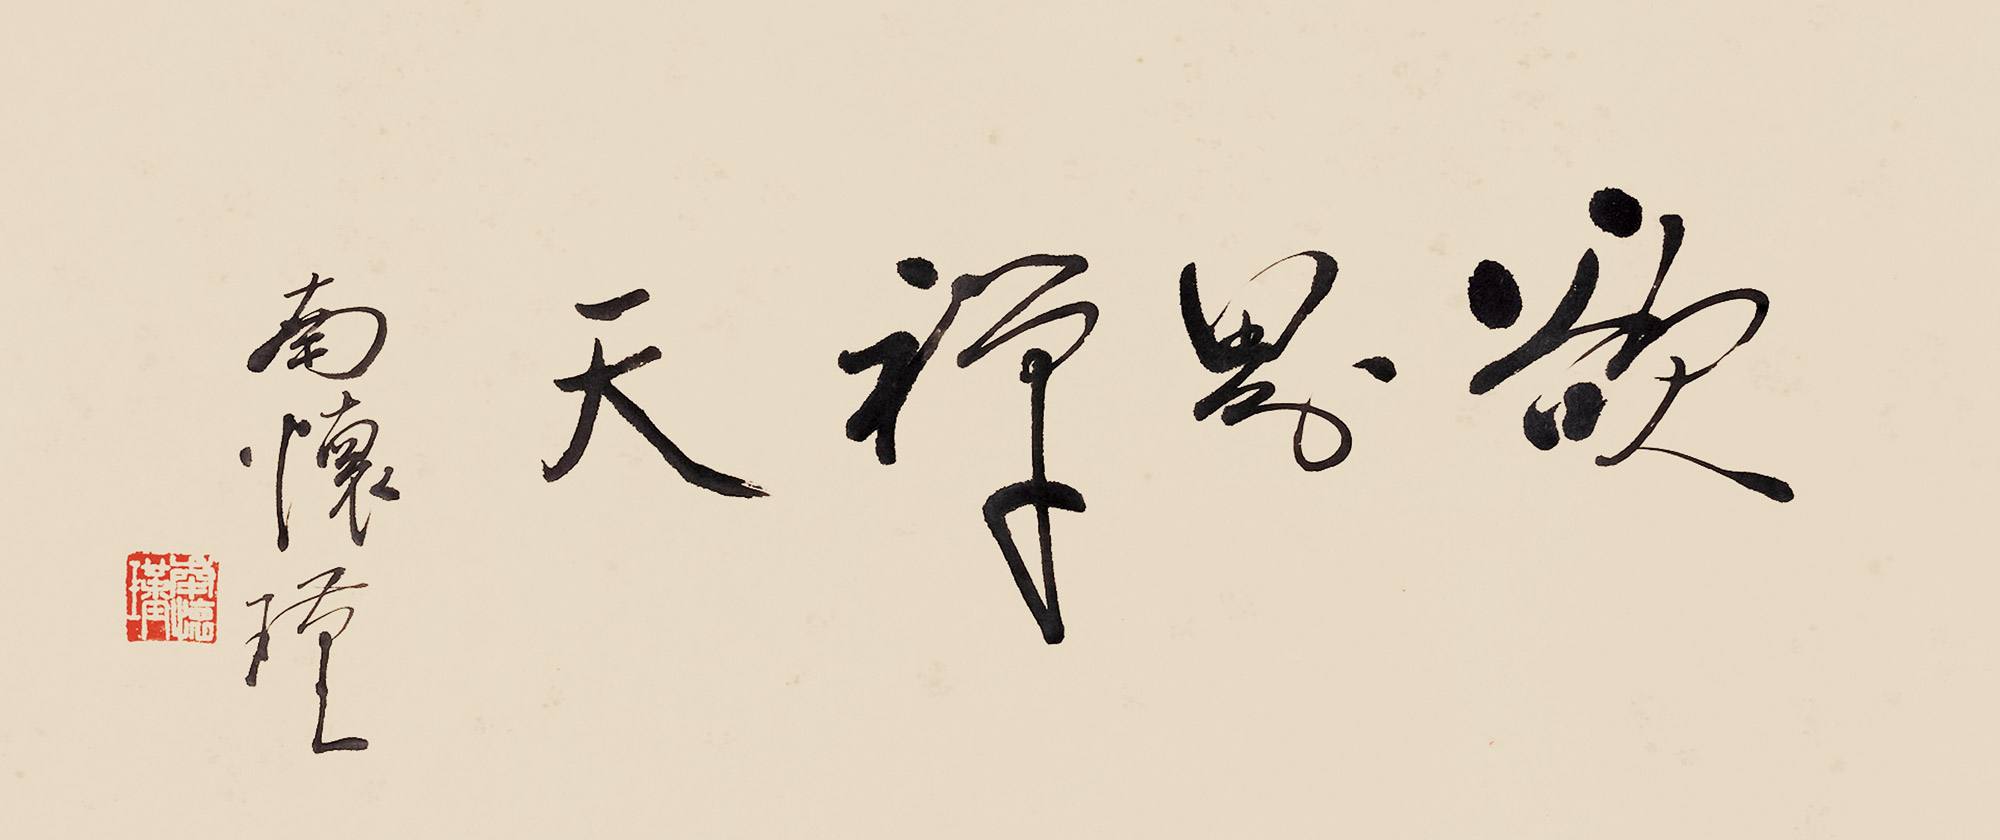 欲界禪天
南懷瑾
南懷瑾